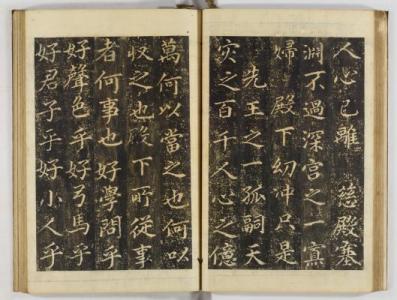 人心已離 慈殿塞
淵不過深宮之一寡
婦 殿下幼冲只是
先王之一孤嗣天
灾之百千人心之億
萬何以當之也何以
收之也殿下所從事
者何事也好學問乎
好聲色乎好弓馬乎
好君子乎好小人乎